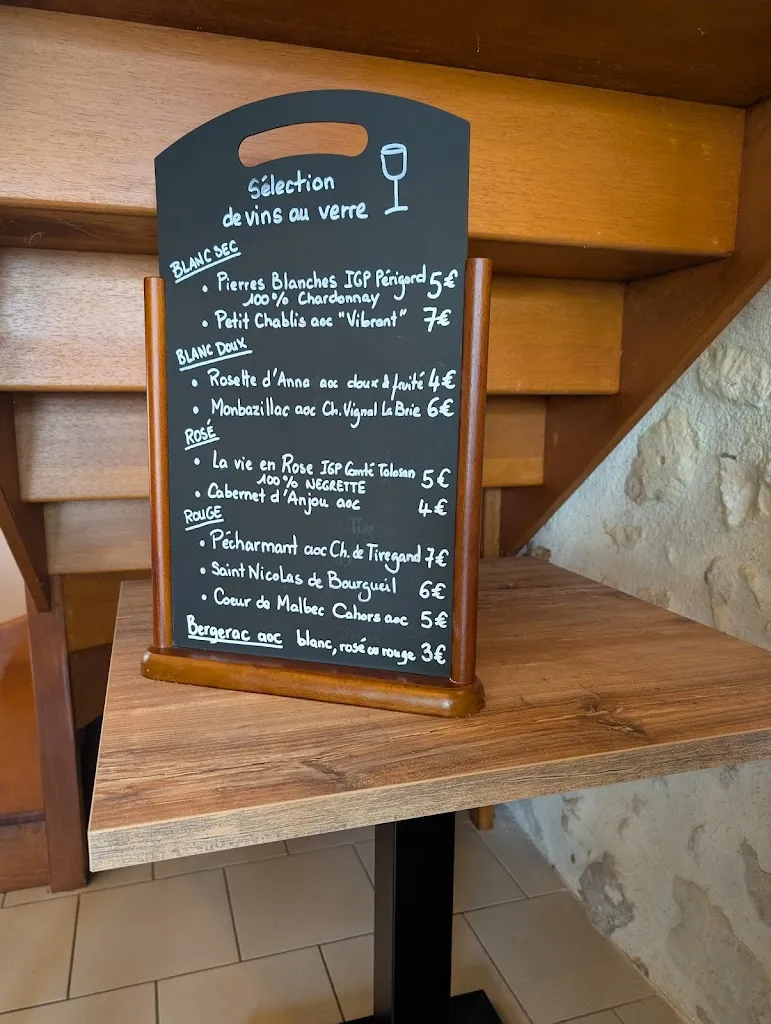 Sélection
de vins au verre
BLANC SEC
• Pierres Blanches IGP Périgord 5€
100% Chardonnay
• Petit Chablis aoc "Vibrant" 7€
BLANC DOUX
• Rosette d'Anna aoc doux & fruité 4€
• Monbazillac aoc Ch. Vignal La Brie 6€
ROSÉ
• La vie en Rose IGP Comté Tolosan 5€
100% NEGRETTE
• Cabernet d'Anjou aoc 4€
ROUGE
• Pécharmant aoc Ch. de Tiregand 7€
• Saint Nicolas de Bourgueil 6€
• Coeur de Malbec Cahors aoc 5€
Bergerac aoc blanc, rosé ou rouge 3€